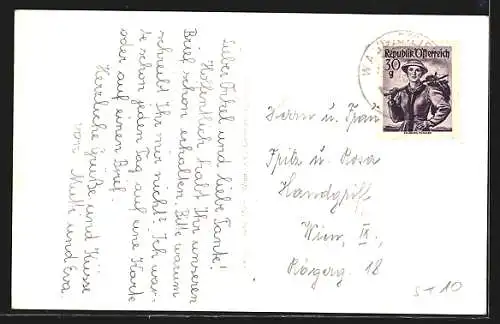 Lieber Onkel und liebe Tante!
Hoffentlich habt Ihr unseren
Brief schon erhalten. Bitte warum
schreibt Ihr mir nicht? Ich war-
te schon jeden Tag auf eine Karte
oder auf einen Brief.
Herzliche Grüße und Küsse
von Mutti und Eva.
Republik Österreich
30
g
Herrn u. Frau
Fritz u. Rosa
Handgriff
Wien, IX.,
Rögerg. 18
S T 10